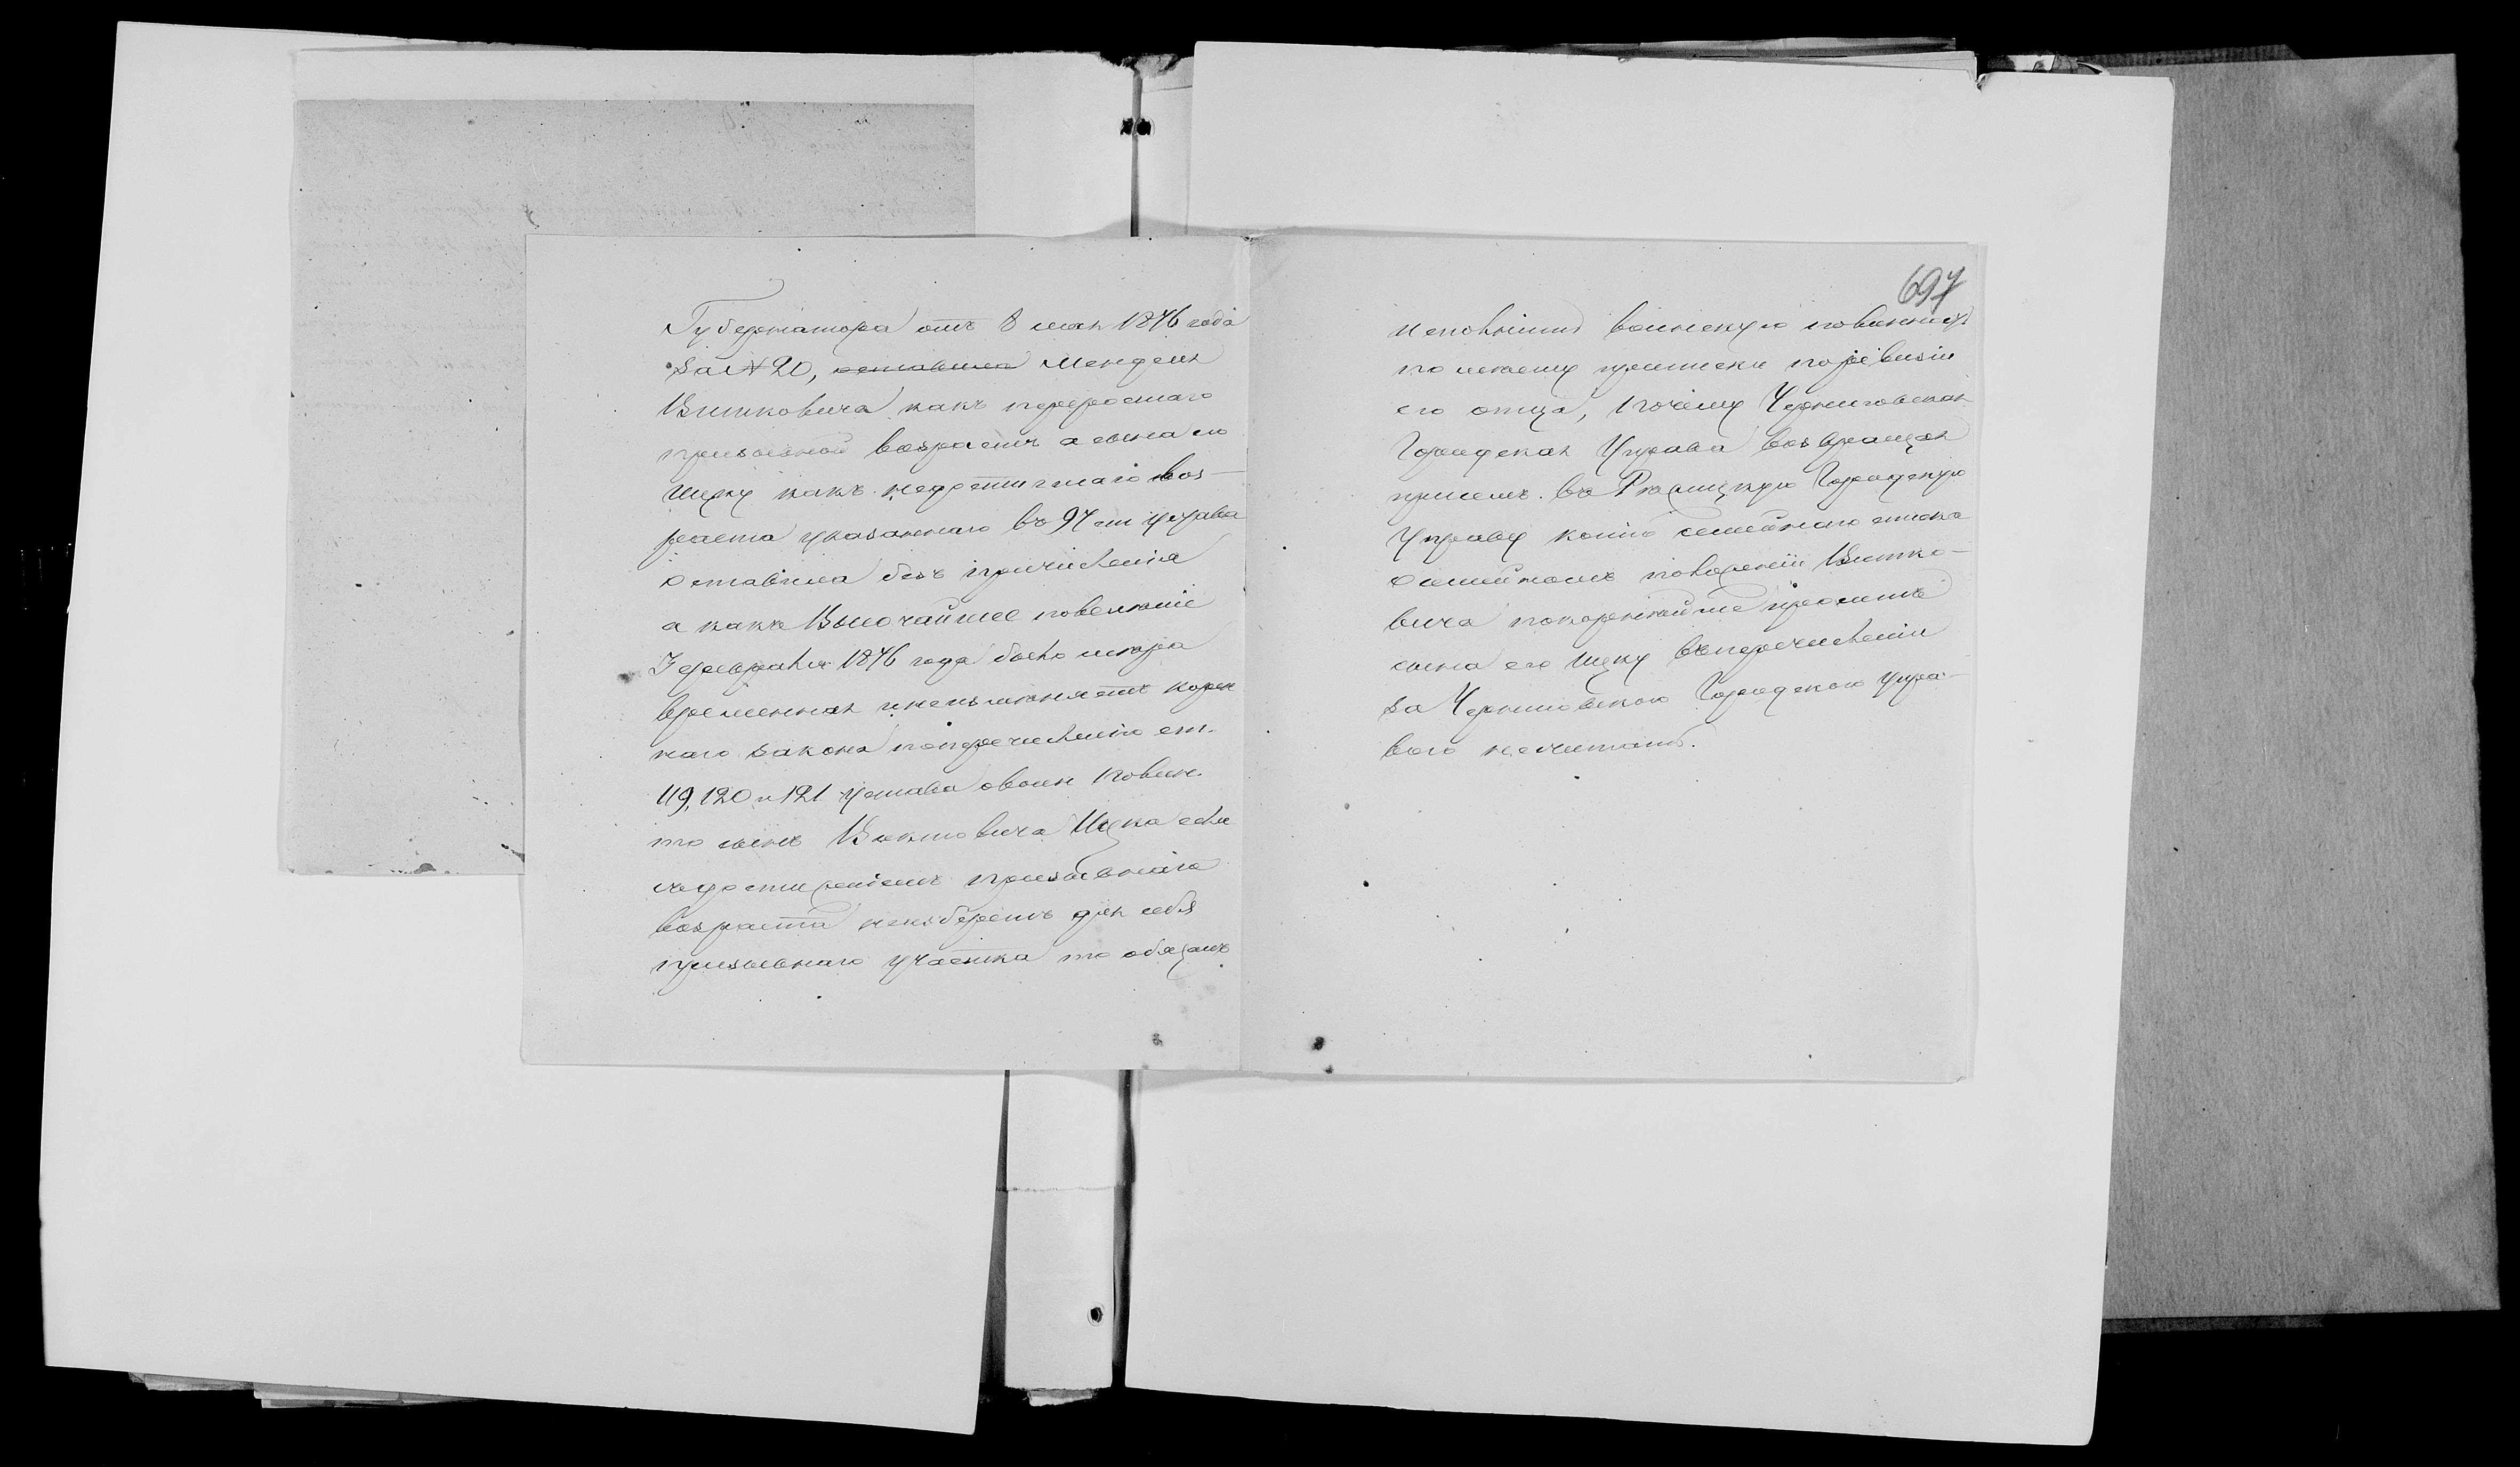 Губернатора отъ 8 мая 1876 года
за № 20, оставила Менделя
Витковича какъ переросшаго
призывной возрастъ а сына его
Ицку какъ недостигшаго воз-
раста указаннаго въ 97 ст устава
оставила безъ причисленія
а какъ Высочайшее повеленіе
3 февраля 1876 года было мѣра
временная и неизмѣняетъ корен
наго закона поперечисленію ст.
119, 120 и 121 устава овоин повин.
то сынъ Витковича Ицка если
недостиженіемъ призывнаго
возраста неизберетъ для себя
призывнаго участка то обязанъ
исполнить воинскую повинность
по мѣсту приписки поревизіи
его отца, почему Черниговская
Городская Управа возвращая
присемъ въ Рѣжицкую Городскую
Управу копію семейнаго списка
осемейномъ Витко-
вича покорнѣйше проситъ
сына его Ицку въперечисленіи
за Черниговскою Городскою Упра-
вою несчитать.
697